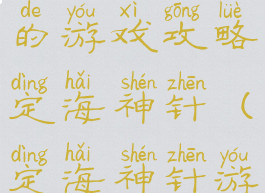 de yóu xì gōng lüè
的游戏攻略
dìng hǎi shén zhēn
定海神针（
dìng hǎi shén zhēn yóu
定海神针游